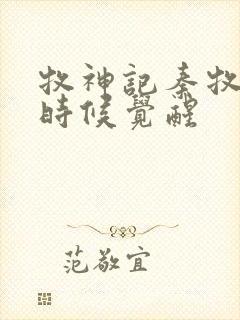 牧神記秦牧
時候覺醒
范敬宜